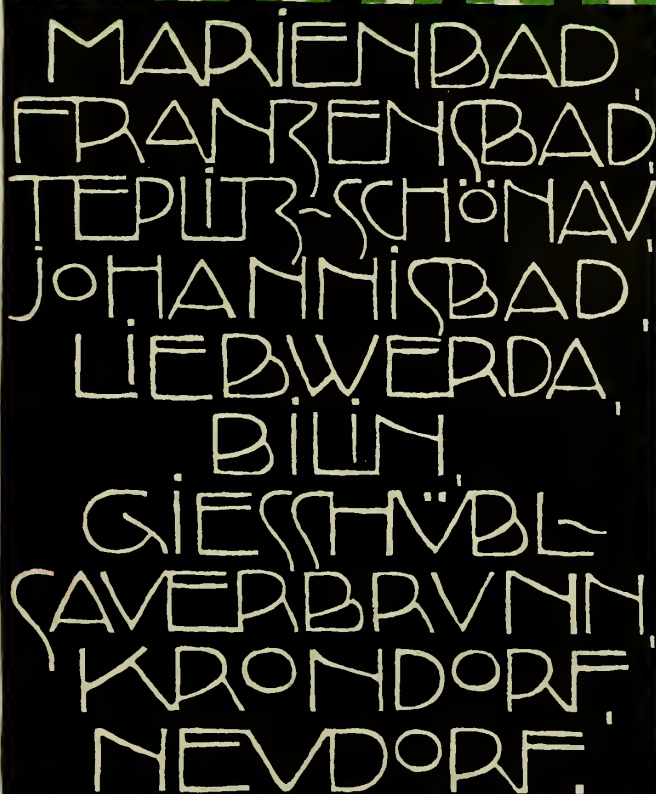 MARiENBAD,
FRANZENSBAD,
TEPLiTZ-SCHÖNAV,
JOHANNiSBAD,
LiEBWERDA,
BiLiN,
GiESSHÜBL-
SAVERBRVNN,
KRONDORF,
NEVDORF.